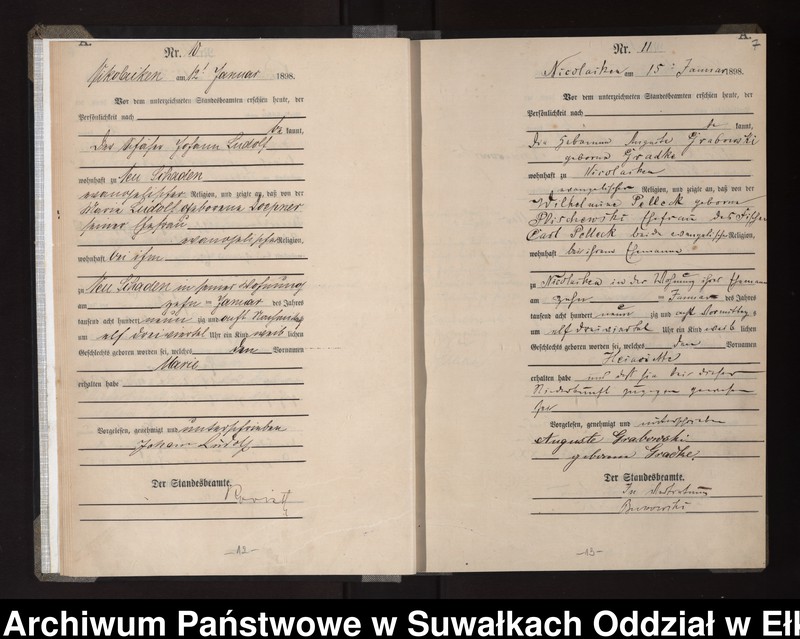 A.
Nr. 10
Nikolaiken am 12ᵗ Januar 1898.
Vor dem unterzeichneten Standesbeamten erschien heute, der
Persönlichkeit nach
be kannt,
Johann Ludolf
wohnhaft zu Neu Schaden
evangelischer Religion, und zeigte an, daß von der
Marie Ludolf geborene
seiner Ehefrau
evangelischer Religion,
wohnhaft bei ihm
zu Neu Schaden in seiner Wohnung
am zehn = Januar des Jahres
tausend acht hundert neun zig und acht Nachmittag
um elf dreiviertel Uhr ein Kind weib lichen
Geschlechts geboren worden sei, welches den Vornamen
Marie
erhalten habe
Vorgelesen, genehmigt und unterschrieben
Johann Ludolf
Der Standesbeamte.
-12-
A.
7
Nr. 11
Nicolaiken am 15ᵗ Januar 1898.
Vor dem unterzeichneten Standesbeamten erschien heute, der
Persönlichkeit nach
be kannt,
die Hebamme Auguste Grabowski
geborene Gradtke
wohnhaft zu Nicolaiken
evangelischer Religion, und zeigte an, daß von der
Wilhelmine Polleck geborene
Ehefrau des Fischer
Carl Polleck beide evangelischer Religion,
wohnhaft bei ihrem Ehemanne
zu Nicolaiken in der Wohnung ihres Ehemann
am zehn = Januar des Jahres
tausend acht hundert neun zig und acht Vormittag
um elf dreiviertel Uhr ein Kind weib lichen
Geschlechts geboren worden sei, welches den Vornamen
Henriette
erhalten habe und daß sie bei dieser
Niederkunft zugegen gewesen
sei
Vorgelesen, genehmigt und unterschrieben
Auguste Grabowski
geborene
Der Standesbeamte.
In Vertretung
-13-
Archiwum Państwowe w Suwałkach Oddział w Eł